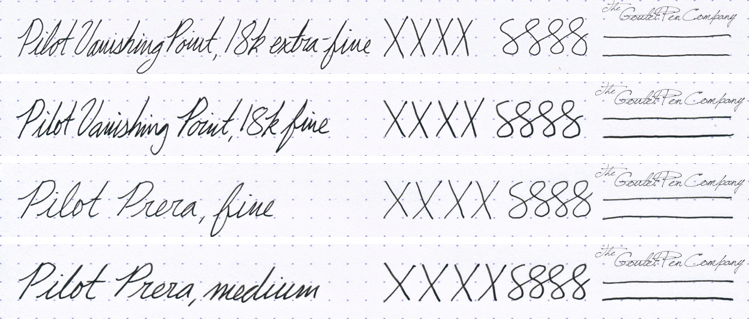 Pilot Vanishing Point, 18k extra-fine XXXX 8888 The Goulet Pen Company
Pilot Vanishing Point, 18k fine XXXX 8888 The Goulet Pen Company
Pilot Prera, fine XXXX 8888 The Goulet Pen Company
Pilot Prera, medium XXXX 8888 The Goulet Pen Company